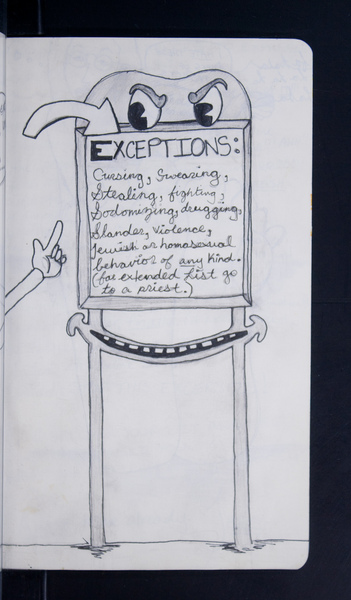 EXCEPTIONS:
Cursing, Swearing,
Stealing, fighting,
Sodomizing, drugging,
Slander, violence,
Jewish or homosexual
behavior of any kind.
(for extended list go
to a priest.)